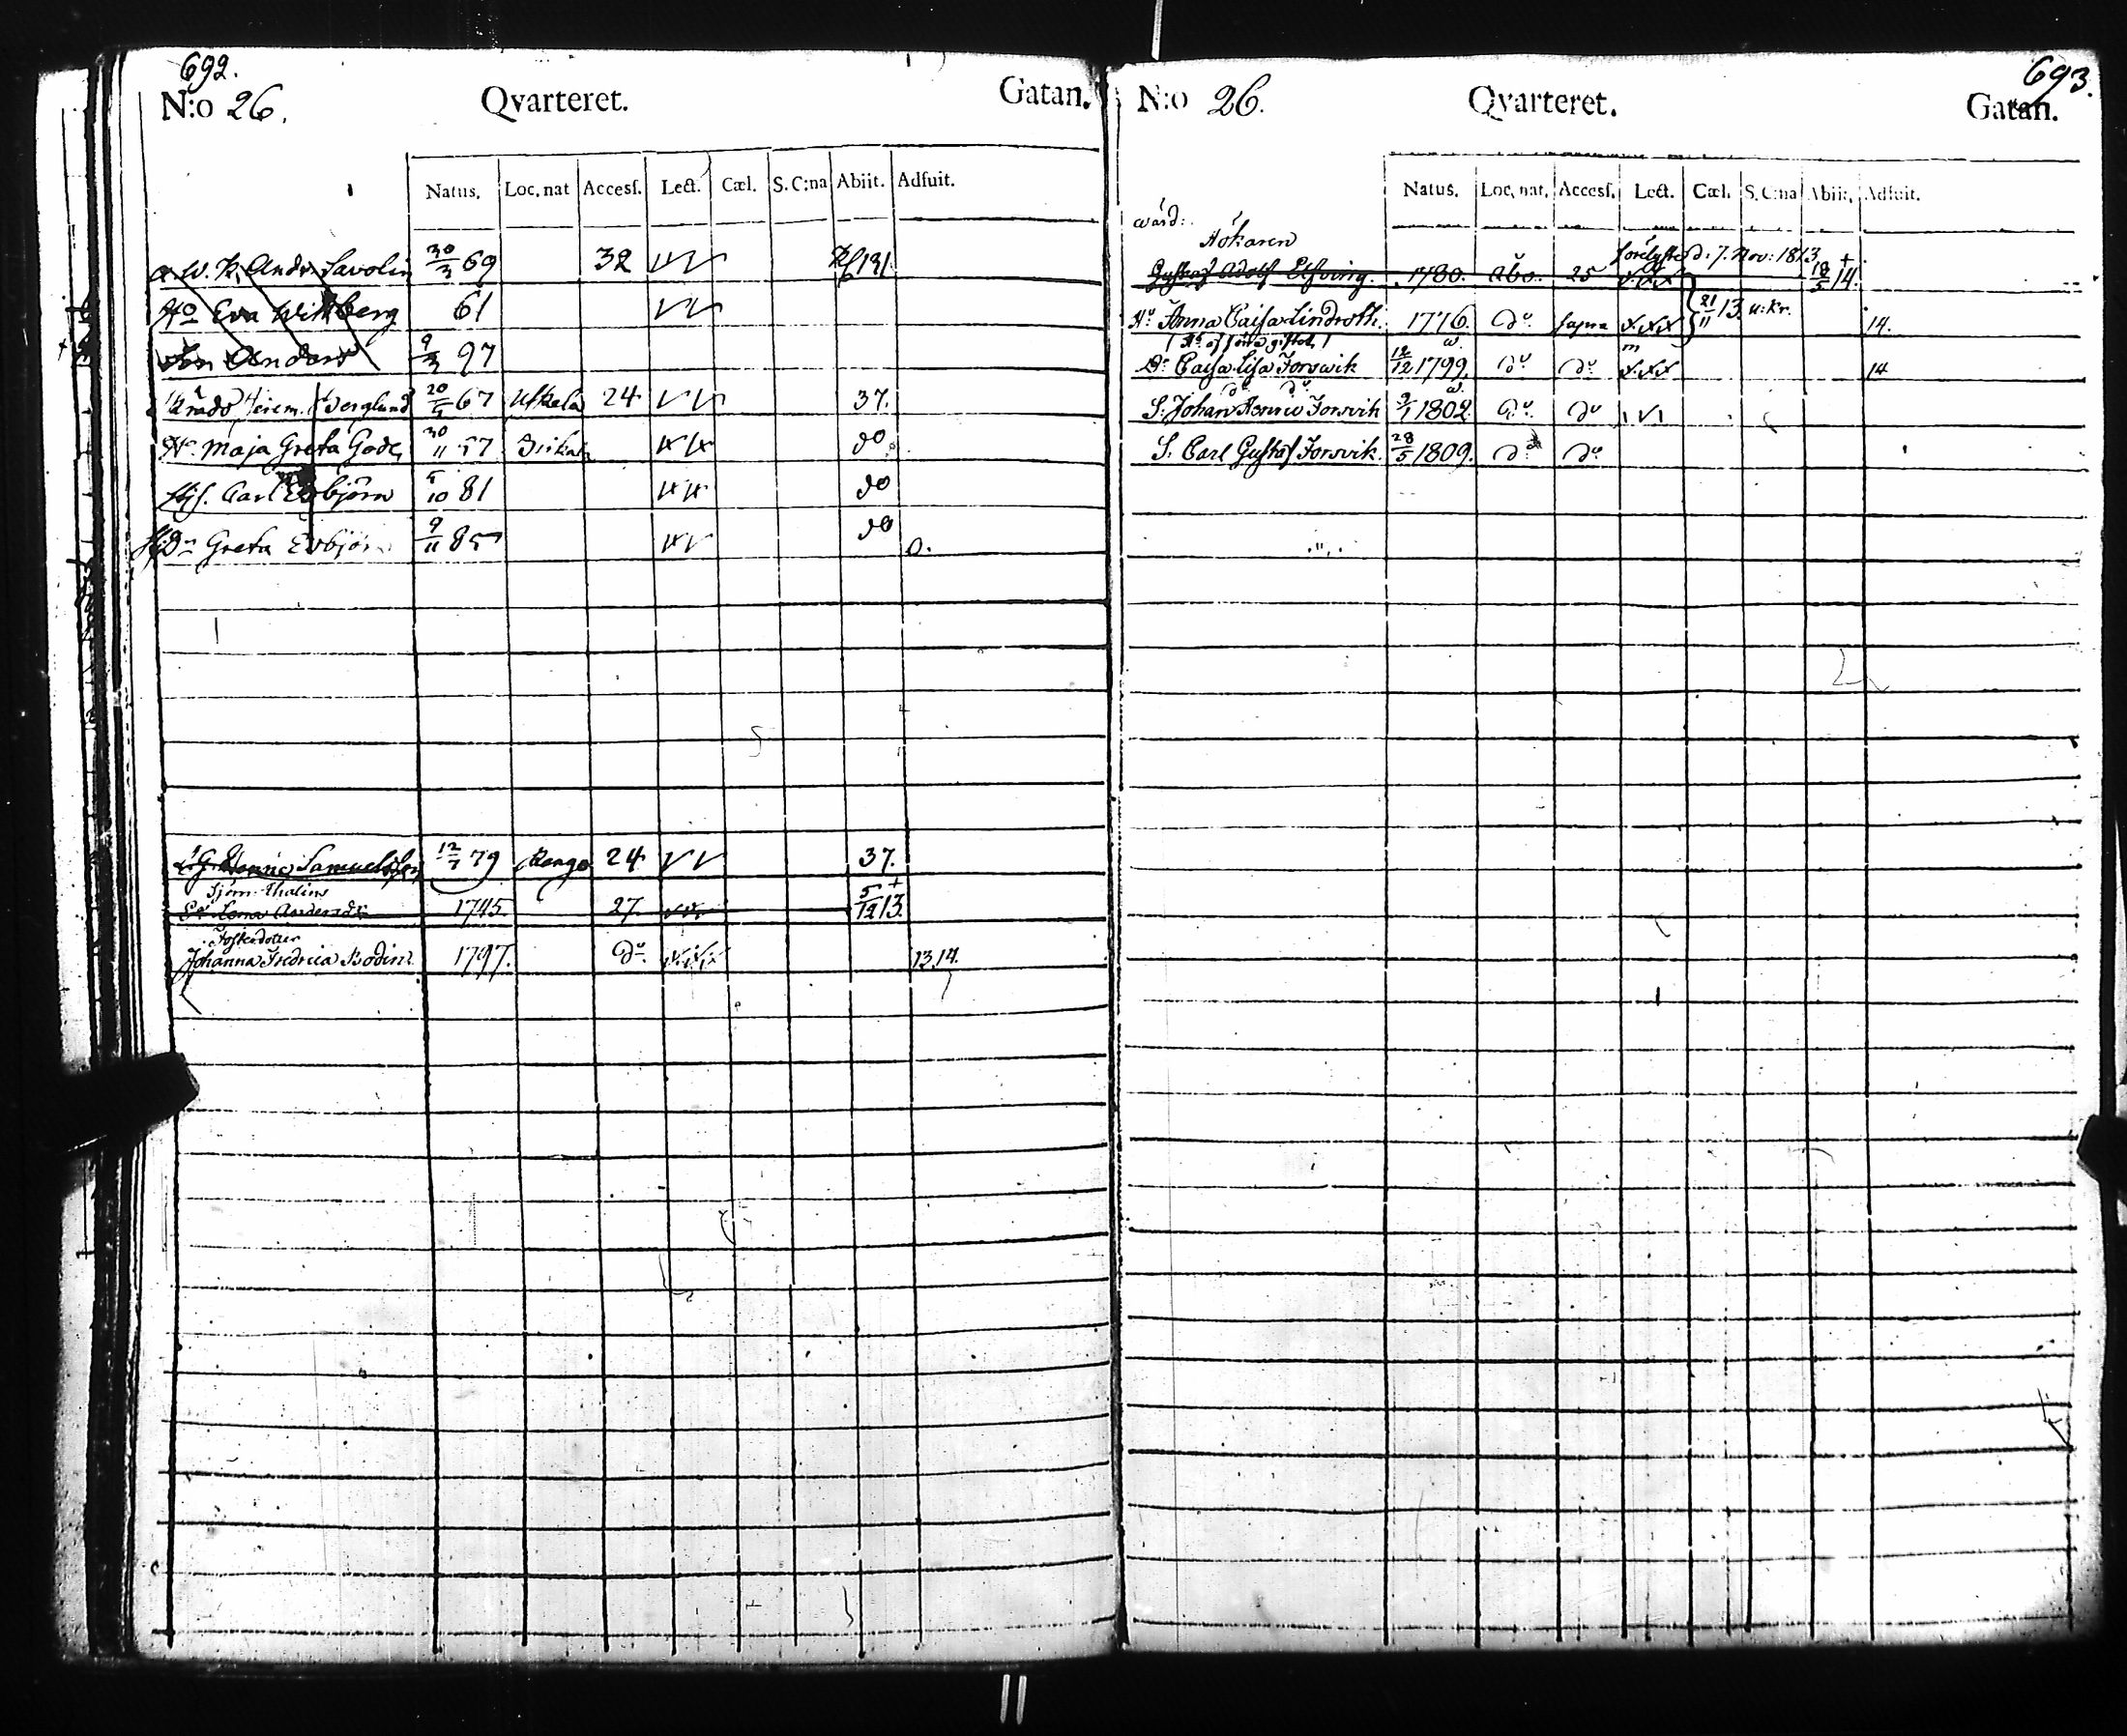 692.
N:o 26. Qvarteret. Gatan.
Natus. Loc. nat Accesf. Lect. Cæl. S. C:na Abiit. Adfuit.
And. Savolin 30/3 69 32
H:o Eva Wittberg 61
Son Anders 9/3 97
Berglund 20/4 67 24 37.
H:o Maja Greta Gode 30/11 57 do
Carl Esbjörn 5/10 81 do
D:r Greta Esbjörn 9/11 85 do 0.
Henric Samuelsson 12/7 79 24 37.
Sjöm. Thalins
Lena Andersdr 1745. 27. 5/12 13. +
Fosterdotter
Johanna Fredrica Bodin 1797. D:o 13.14.
693.
N:o 26. Qvarteret. Gatan.
Natus. Loc. nat. Accesf. Lect. Cæl. S. C:na Abiit. Adfuit.
wärd:
Hökaren förelyste d: 7. Nov: 1813
Gustaf Adolf Elfving. 1780. Åbo. 25 18/5 14. +
H:o Anna Caisa Lindroth. 1776. D:o supra 21/11 13. 14.
D:r Caisa Lisa Forswik 12/12 1799. D:o D:o 14
S. Johan Henric Forsvik 9/1 1802. D:o D:o
S. Carl Gustaf Forsvik. 28/5 1809. D:o D:o